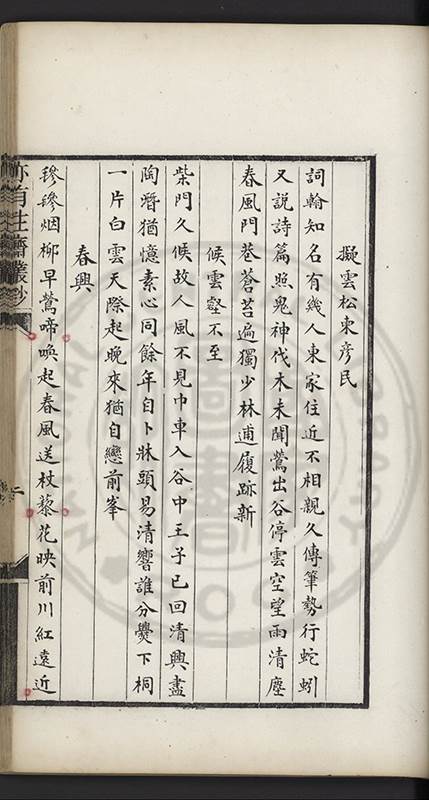 擬雲松柬彥民
詞翰知名有幾人東家住近不相親久傳筆勢行蛇蚓
又說詩篇照鬼神伐木未聞鶯出谷停雲空望雨清塵
春風門巷蒼苔遍獨少林逋履跡新
候雲壑不至
柴門久候故人風不見巾車入谷中王子已回清興盡
陶潛猶憶素心同餘年自卜牀頭易清響誰分爨下桐
一片白雲天際起晚來猶自戀前峯
春興
毿毿烟柳早鶯啼喚起春風送杖藜花映前川紅遠近
亦有生齋叢鈔
二